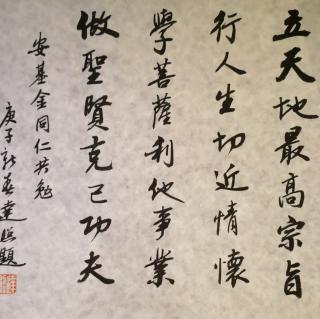 立天地最高宗旨
行人生切近情懷
學菩薩利他事業
做聖賢克己功夫
安基金同仁共勉
庚子新春達照題